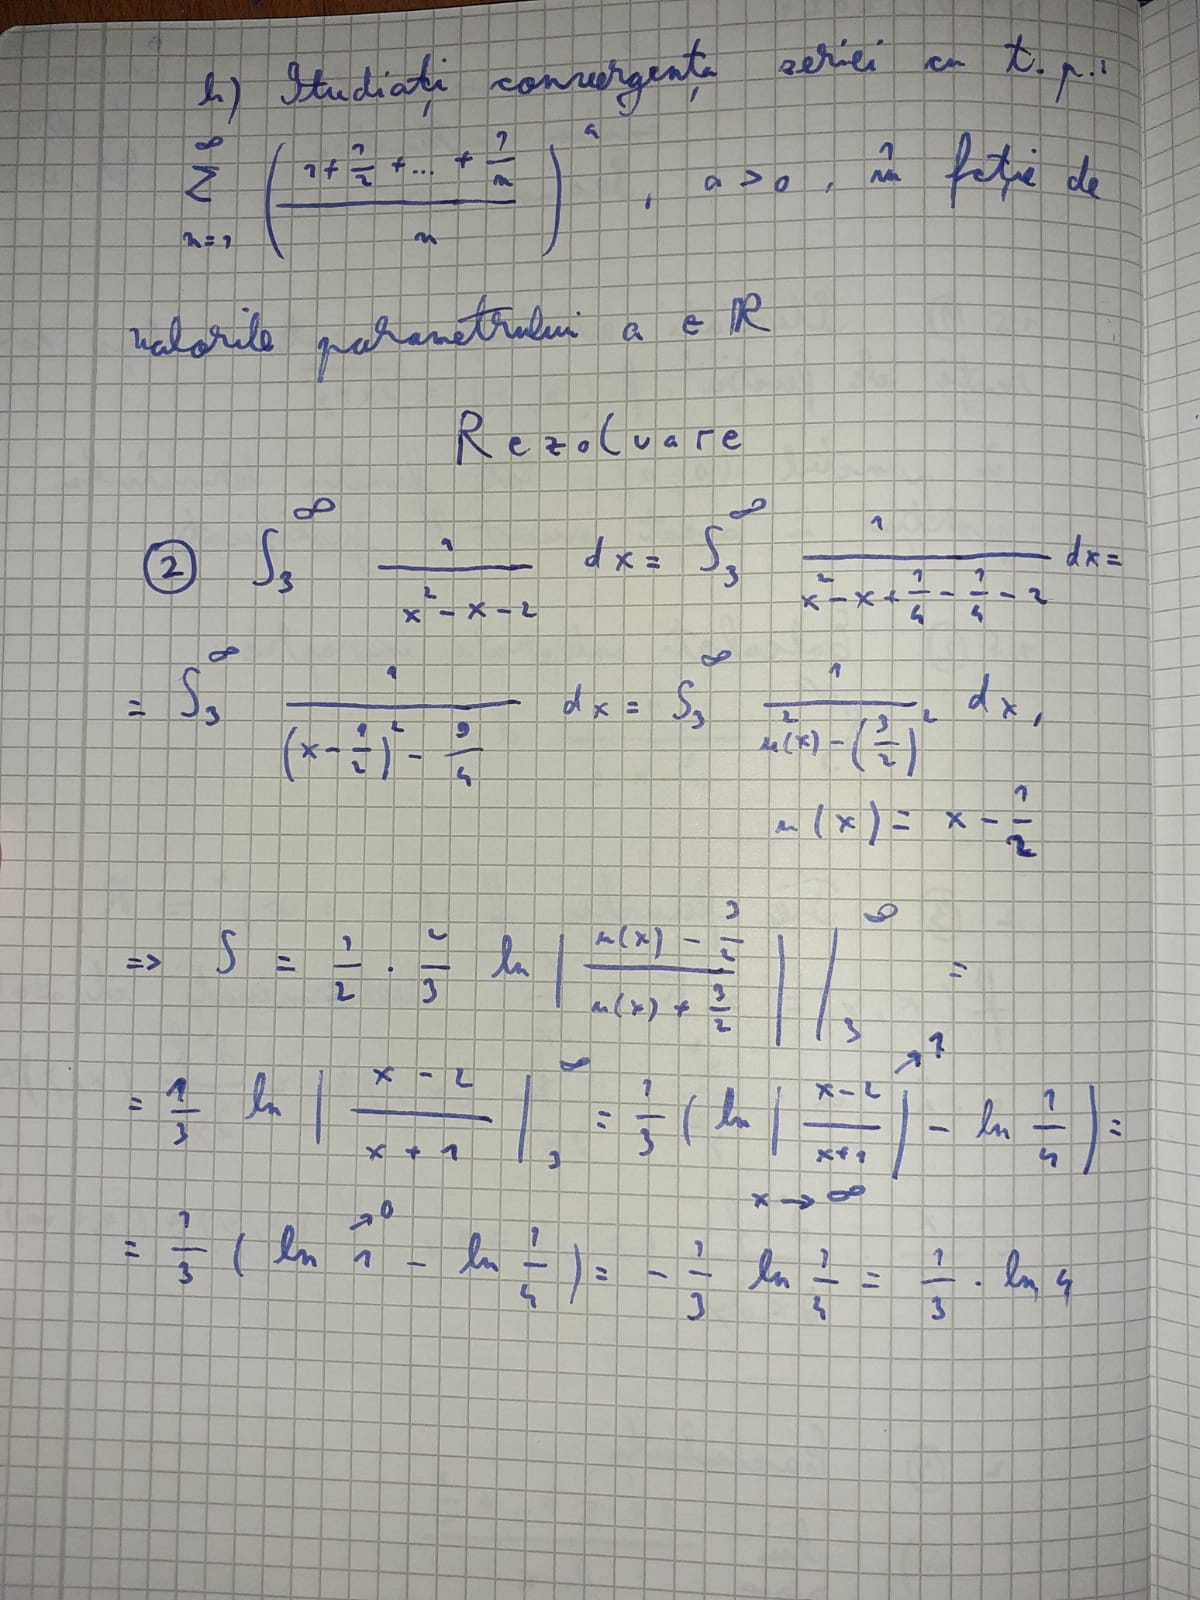 b) Studiați convergența seriei cu t.p.:
∞ Σ n=1 ( (1 + 1/2 + ... + 1/n) / n )^a , a > 0 , în fcție de
valorile parametrului a ∈ R
Rezolvare
② ∫_3^∞ 1/(x² - x - 2) dx = ∫_3^∞ 1/(x² - x + 1/4 - 1/4 - 2) dx =
= ∫_3^∞ 1/((x - 1/2)² - 9/4) dx = ∫_3^∞ 1/(u²(x) - (3/2)²) dx ,
u(x) = x - 1/2
=> ∫ = 1/2 · 2/3 ln | (u(x) - 3/2)/(u(x) + 3/2) | |_3^∞ =
= 1/3 ln | (x - 2)/(x + 1) |_3^∞ = 1/3 ( ln | (x-2)/(x+1) |↗1 - ln 1/4 ) =
x → ∞
= 1/3 ( ln 1 →0 - ln 1/4 ) = - 1/3 ln 1/4 = 1/3 · ln 4